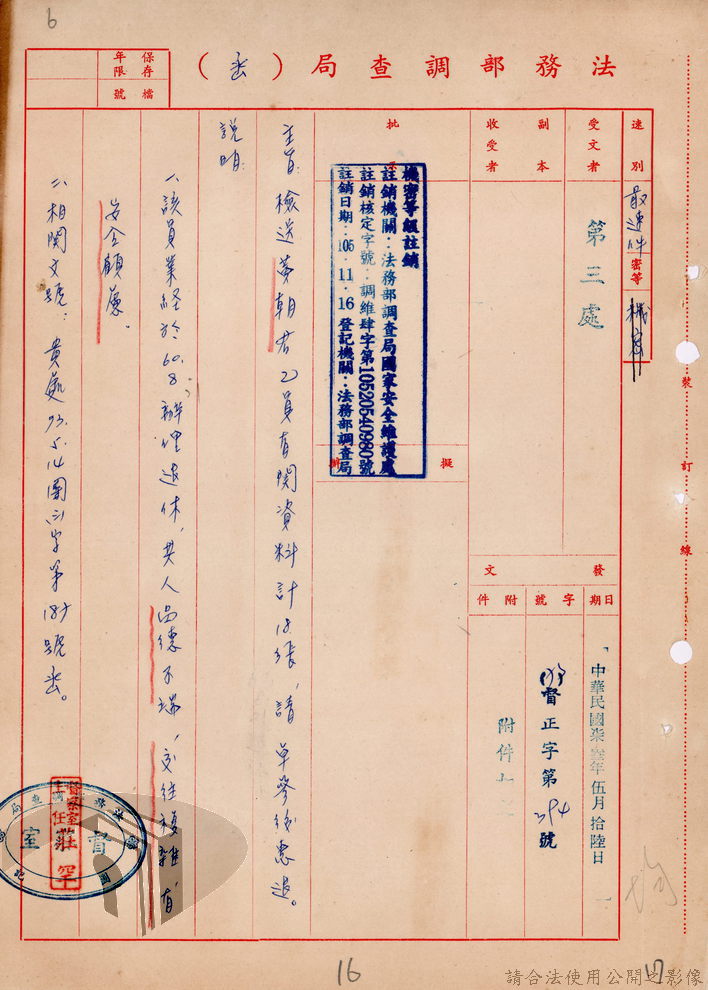 6
法務部調查局（函）
保存年限
檔號
速別
最速件
密等
機密
受文者
第三處
副本收受者
批示
擬辦
機密等級註銷
註銷機關：法務部調查局國家安全維護處
註銷核定字號：調維肆字第10520540980號
註銷日期：105.11.16 登記機關：法務部調查局
發文
日期
字號
附件
中華民國柒叁年伍月拾陸日
督正字第294號
附件
主旨：檢送黃朝君乙員有關資料計18張，請卓參後惠還。
說明：
一、該員業經於60.8.辦理退休，其人品德不端，交往複雜，有
安全顧慮。
二、相關文號：貴處73.5.14團(三)字第185號函。
督察室
主任
莊
裝
訂
線
16
17
請合法使用公開之影像